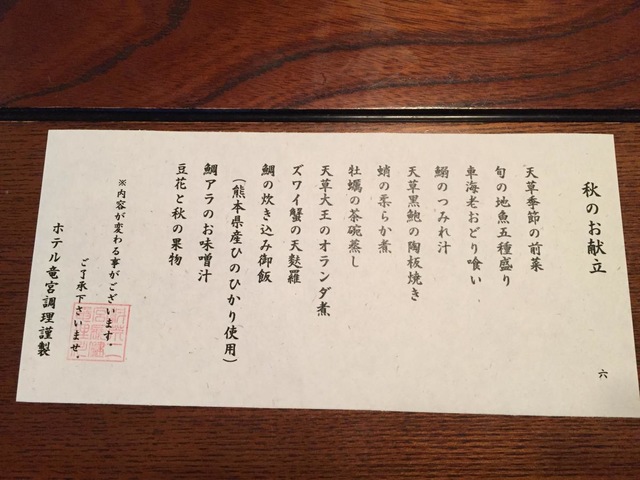 秋のお献立
六
天草季節の前菜
旬の地魚五種盛り
車海老おどり喰い
鰯のつみれ汁
天草黒鮑の陶板焼き
蛸の柔らか煮
牡蠣の茶碗蒸し
天草大王のオランダ煮
ズワイ蟹の天麩羅
鯛の炊き込み御飯
（熊本県産ひのひかり使用）
鯛アラのお味噌汁
豆花と秋の果物
※内容が変わる事がございます。
ご了承下さいませ。
ホテル竜宮調理謹製